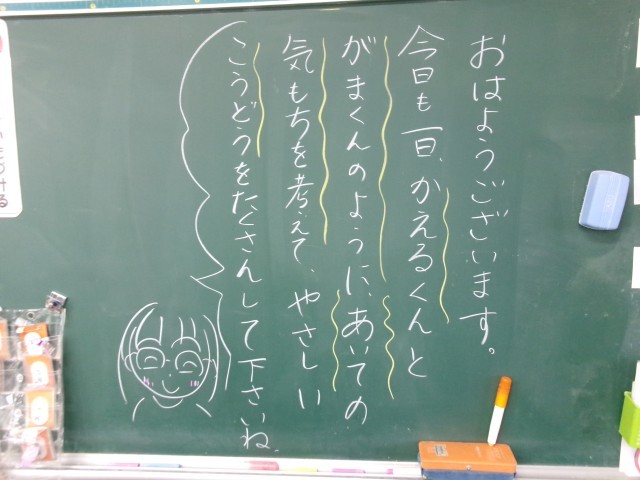 おはようございます。
今日も一日、かえるくんと
がまくんのように、あいての
気もちを考えて、やさしい
こうどうをたくさんして下さいね。